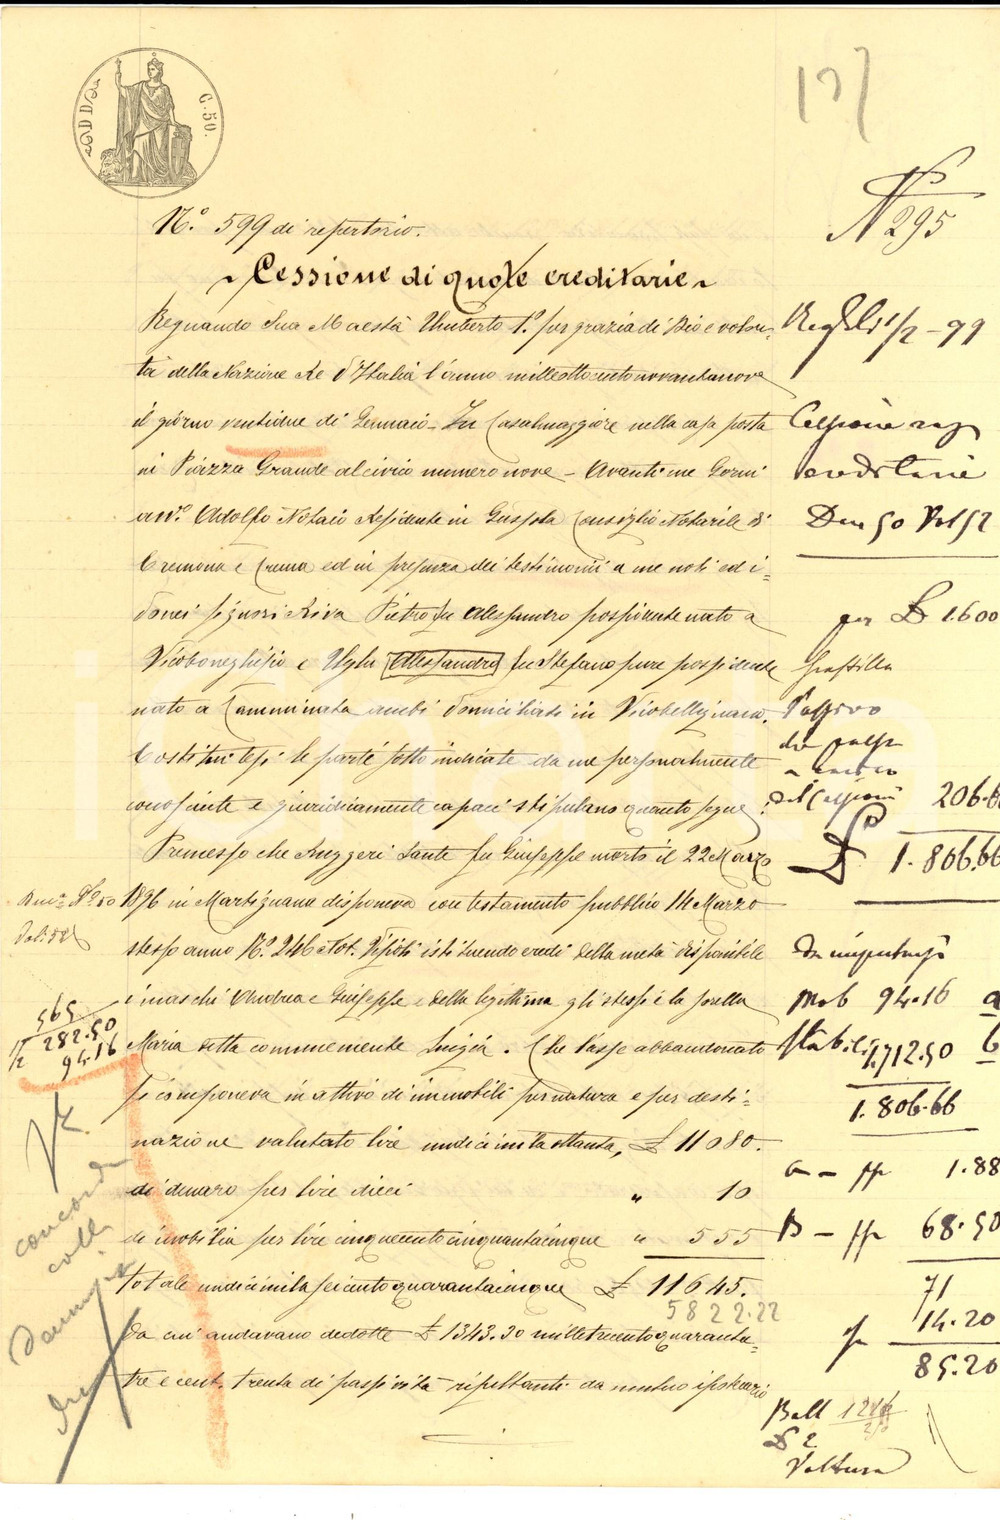 C. 50.
N.° 599 di repertorio.
Cessione di quote ereditarie
Regnando Sua Maestà Umberto 1.° per grazia di Dio e volon-
tà della Nazione Re d'Italia l'anno milleottocentonovantanove
il giorno ventidue di Gennaio - In Casalmaggiore nella casa posta
in Piazza Grande al civico numero nove - Avanti me Gorni
avv.° Adolfo Notaio residente in Gussola Consiglio Notarile di
Cremona e Crema ed in presenza dei testimoni a me noti ed i-
donei signori Riva Pietro fu Alessandro possidente nato a
Vicoboneghisio e Alessandro fu Stefano pure possidente
nato a Camminata ambi domiciliati in Vicobellignano.
Costituitesi le parti sotto indicate da me personalmente
conosciute e giuridicamente capaci stipulano quanto segue:
Premesso che Ruggeri Sante fu Giuseppe morto il 22 Marzo
1896 in Martignana disponeva con testamento pubblico 14 Marzo
stesso anno N.° 246 istituendo eredi della metà disponibile
i maschi Andrea e Giuseppe e della legittima gli stessi e la sorella
Maria detta comunemente Luigia. Che l'asse abbandonato
si componeva in attivo di immobili per natura e per desti-
nazione valutato lire undicimilaottanta, £ 11080.
di denaro per lire dieci " 10
di mobilia per lire cinquecentocinquantacinque " 555
totale undicimilaseicentoquarantacinque £ 11645.
5822.22
da cui andavano dedotte £ 1343.30 milletrecentoquaranta-
tre e cent. trenta di passività risultanti da mutuo ipotecario
N° 295
1/2 - 99
Cessione
ereditarie
50 Vol 52
per £ 1.600
Passivo
a carico
206.66
£ 1.806.66
Mob 94.16 a
Stabili 1,712.50 b
1.806.66
a - 1.88
B - 68.50
71
14.20
85.20
Boll
£ 2
Voltura
565
282.50
94.16
concorda
colla